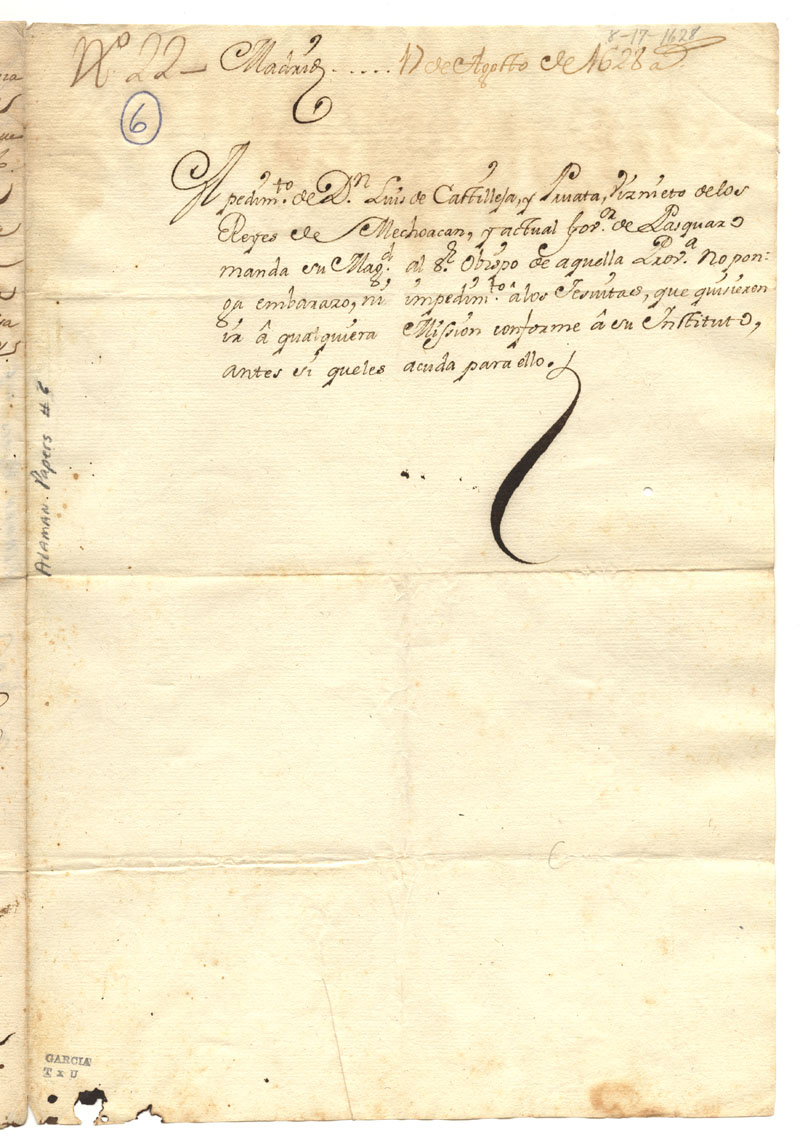 8-17-1628
Nº 22 - Madrid ..... 17 de Agosto de 1628 a.
6
A pedim.to de D.n Luis de Castilleja, y Puuata, Viznieto de los
Reyes de Mechoacan, y actual Gov.or de Pasquaro
manda su Mag.d al S.r Obispo de aquella Prov.a No pon-
ga embarazo, ni impedim.to â los Jesuitas, que quisieren
ir â qualquiera Mission conforme â su Instituto,
antes si que les acuda para ello.
ALAMAN. Papers #6
GARCIA
T x U